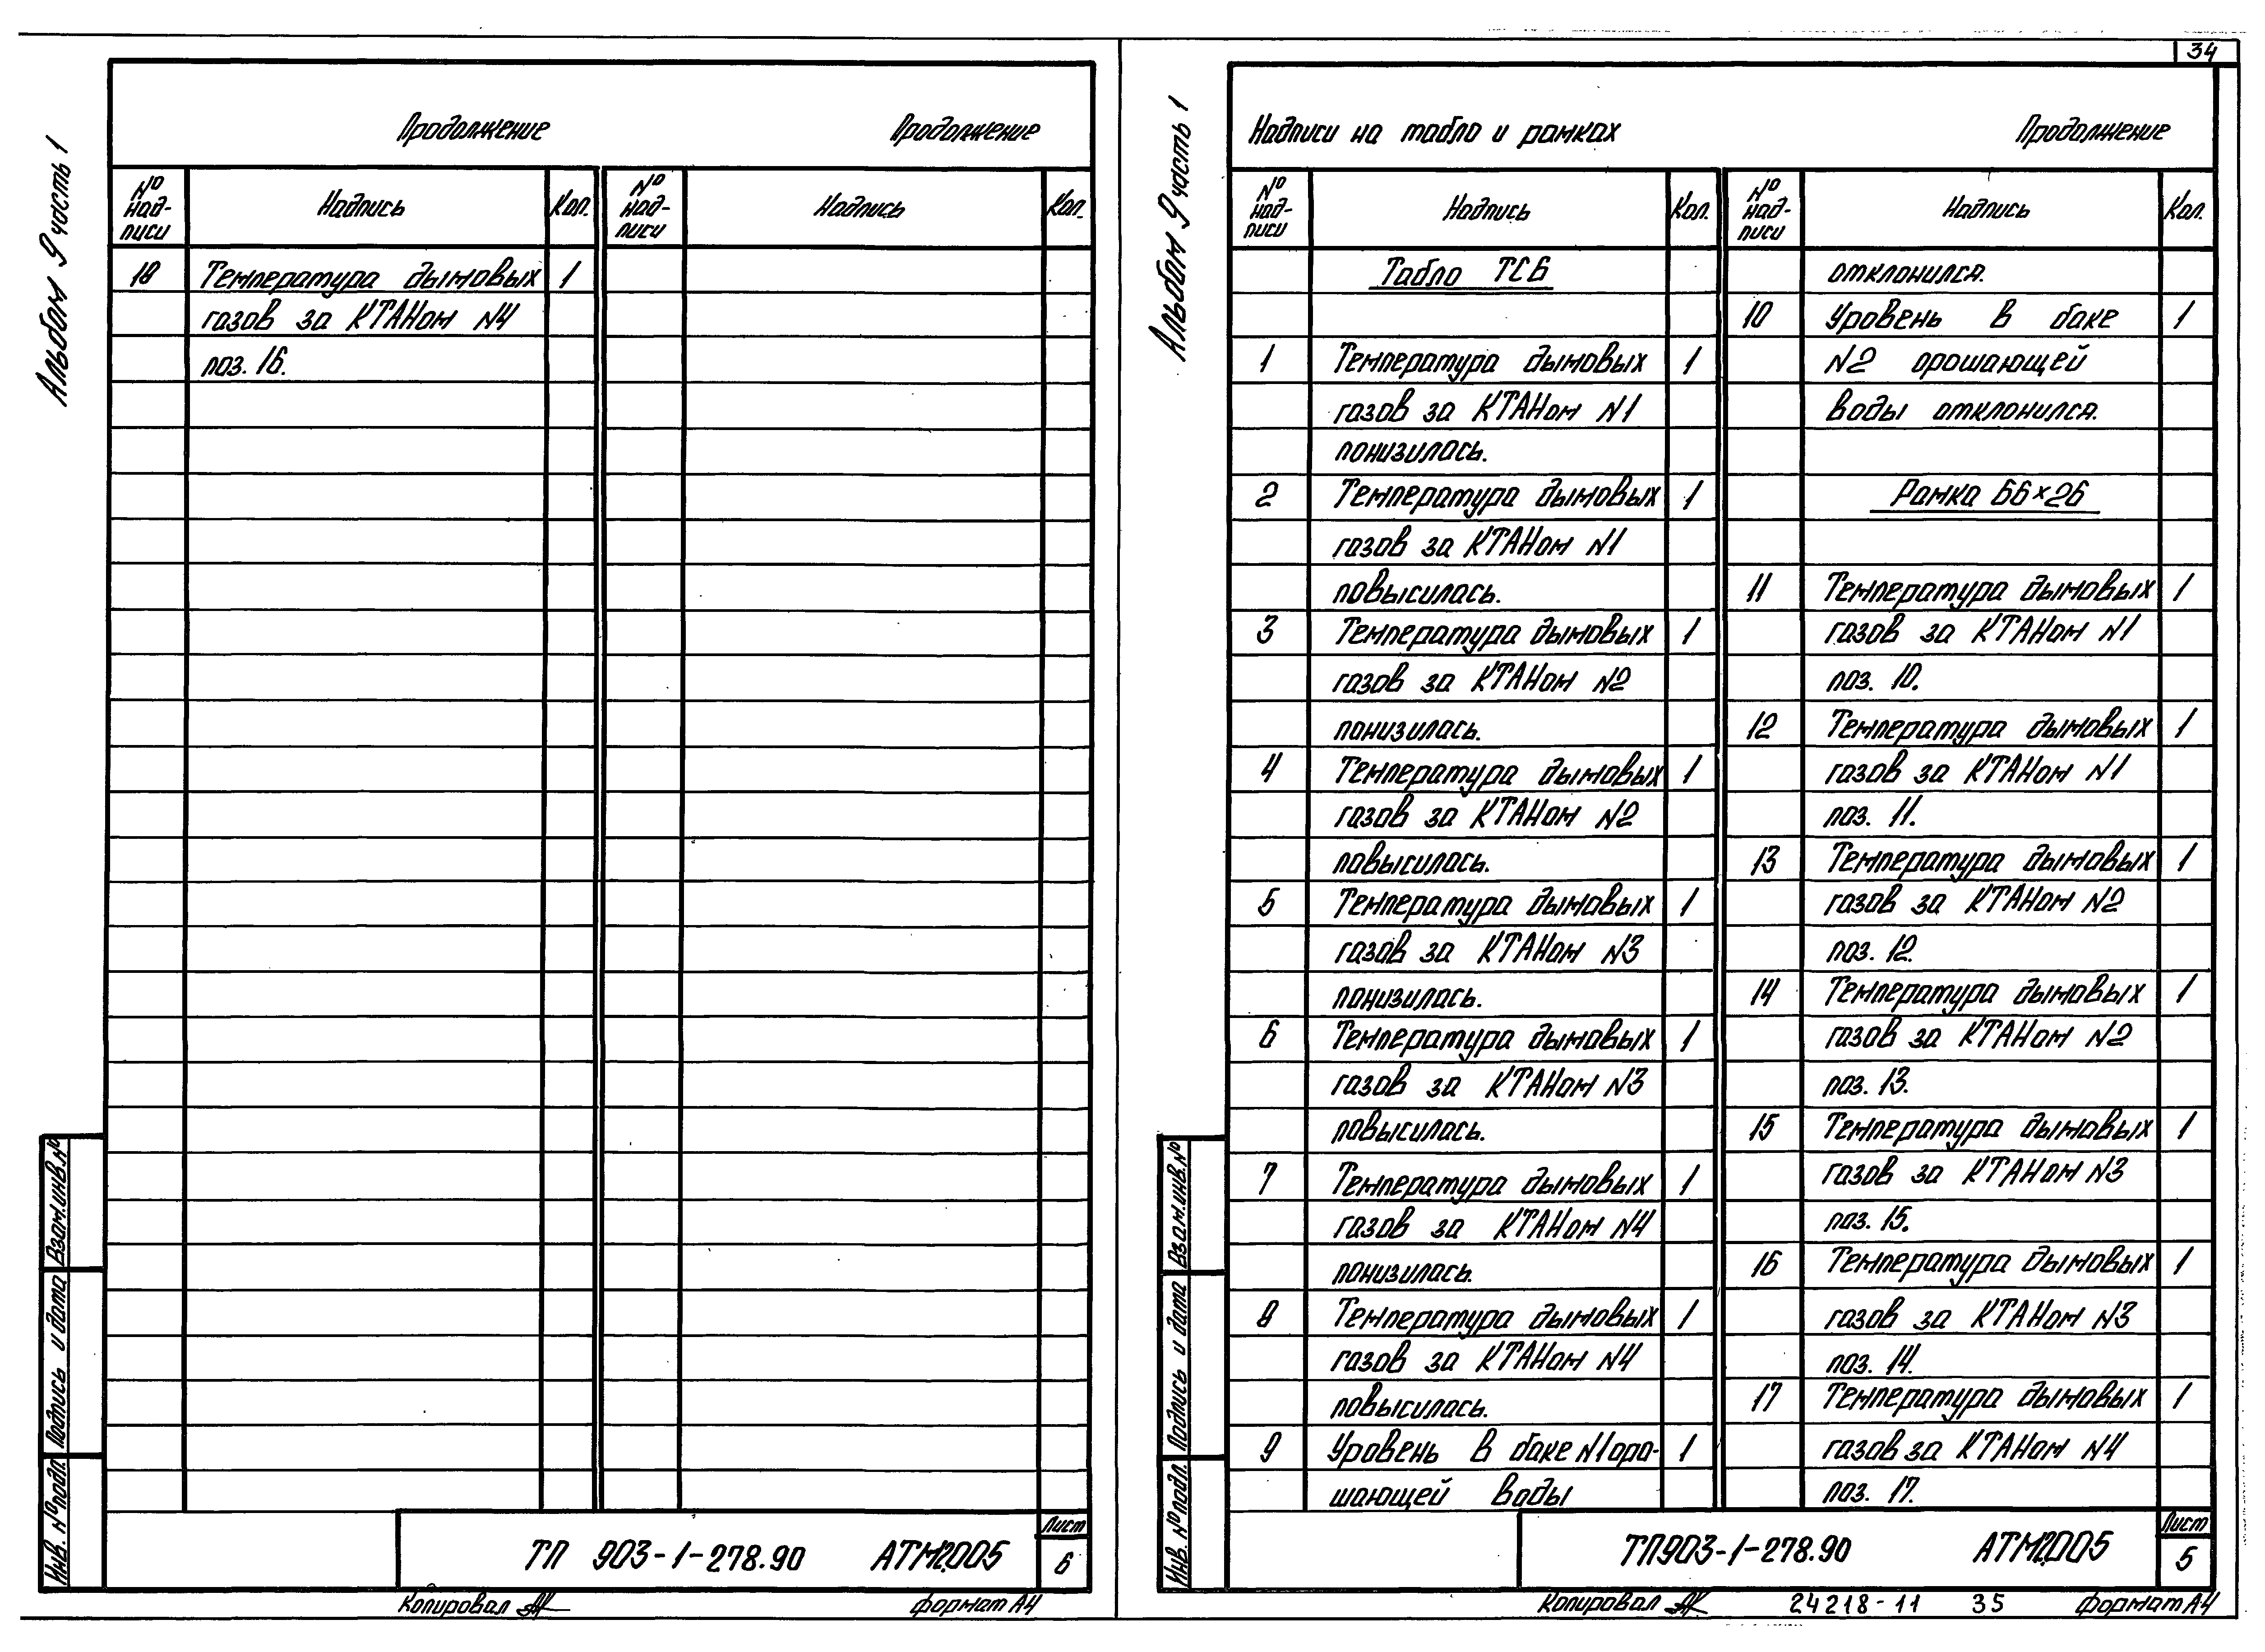 Альбом 9 часть 1
Продолжение Продолжение
№ над-писи Надпись Кол. № над-писи Надпись Кол.
18 Температура дымовых 1
газов за КТАНом N4
поз. 16.
Взам.инв.№
Подпись и дата
Инв. № подл.
ТП 903-1-278.90 АТМ2.005
Лист
6
Копировал
формат А4
34
Альбом 9 часть 1
Надписи на табло и рамках Продолжение
№ над-писи Надпись Кол.
Табло ТСБ
1 Температура дымовых 1
газов за КТАНом N1
понизилась.
2 Температура дымовых 1
газов за КТАНом N1
повысилась.
3 Температура дымовых 1
газов за КТАНом N2
понизилась.
4 Температура дымовых 1
газов за КТАНом N2
повысилась.
5 Температура дымовых 1
газов за КТАНом N3
понизилась.
6 Температура дымовых 1
газов за КТАНом N3
повысилась.
7 Температура дымовых 1
газов за КТАНом N4
понизилась.
8 Температура дымовых 1
газов за КТАНом N4
повысилась.
9 Уровень в баке N1 оро- 1
шающей воды
№ над-писи Надпись Кол.
отклонился.
10 Уровень в баке 1
N2 орошающей
воды отклонился.
Рамка 66×26
11 Температура дымовых 1
газов за КТАНом N1
поз. 10.
12 Температура дымовых 1
газов за КТАНом N1
поз. 11.
13 Температура дымовых 1
газов за КТАНом N2
поз. 12.
14 Температура дымовых 1
газов за КТАНом N2
поз. 13.
15 Температура дымовых 1
газов за КТАНом N3
поз. 15.
16 Температура дымовых 1
газов за КТАНом N3
поз. 14.
17 Температура дымовых 1
газов за КТАНом N4
поз. 17.
Взам.инв.№
Подпись и дата
Инв. № подл.
ТП903-1-278.90 АТМ2.005
Лист
5
Копировал
24218-11 35 формат А4